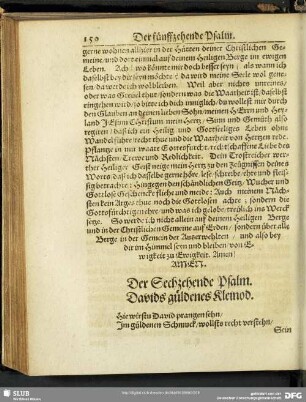 150 Der fünffzehende Psalm.
gerne wohnen allhier in der Hütten deiner Christlichen Ge-
meine/ und dort einmal auf deinem Heiligen Berge im ewigen
Leben. Ach! wo könnte mir doch besser seyn/ als wann ich
daselbst bey dir seyn möchte? da wird meine Seele wol gene-
sen/ da werde ich wol bleiben. Weil aber nichts unreines/
oder was Greuel thut/ sondern was die Warheit thut/ daselbst
eingehen wird/ so bitte ich dich inniglich/ du wollest mir durch
den Glauben an deinen lieben Sohn/ meinen HErrn und Hey-
land JEsum Christum mein Hertz/ Sinn und Gemüth also
regieren/ daß ich ein Heilig und Gottseeliges Leben ohne
Wandel führe/ recht thue und die Warheit von Hertzen rede.
Pflantze in mir wahre Gottesfurcht/ rechtschaffene Liebe des
Nächsten/ Treu und Redlichkeit. Dein
werther Heiliger Geist neige mein Hertz zu den Zeugnissen deines
Worts/ daß ich dasselbe gerne höre/ lese/ schreibe/ ehre und fleis-
sig betrachte; Hingegen den schändlichen Geitz/ Wucher und
Gottlose Geschencke fliehe und meide: Auch meinem Näch-
sten kein Arges thue/ noch die Gottlosen achte; sondern die
Gottsfürchtige ehre/ und was ich gelobe/ treulich ins Werck
setze. So werde ich nicht allein auf deinem Heiligen Berge
und in der Christlichen Gemeine auf Erden/ sondern über alle
Berge in der Gemein der Auserwehlten/ und also bey
dir im Himmel seyn und bleiben/ von E-
wigkeit zu Ewigkeit. Amen!
AMEN.
Der Sechzehende Psalm.
Davids güldenes Kleinod.
Hie wirstu David prangen sehn/
Im güldenen Schmuck/ wollsts recht verstehn/
Sein
SLUB
DFG